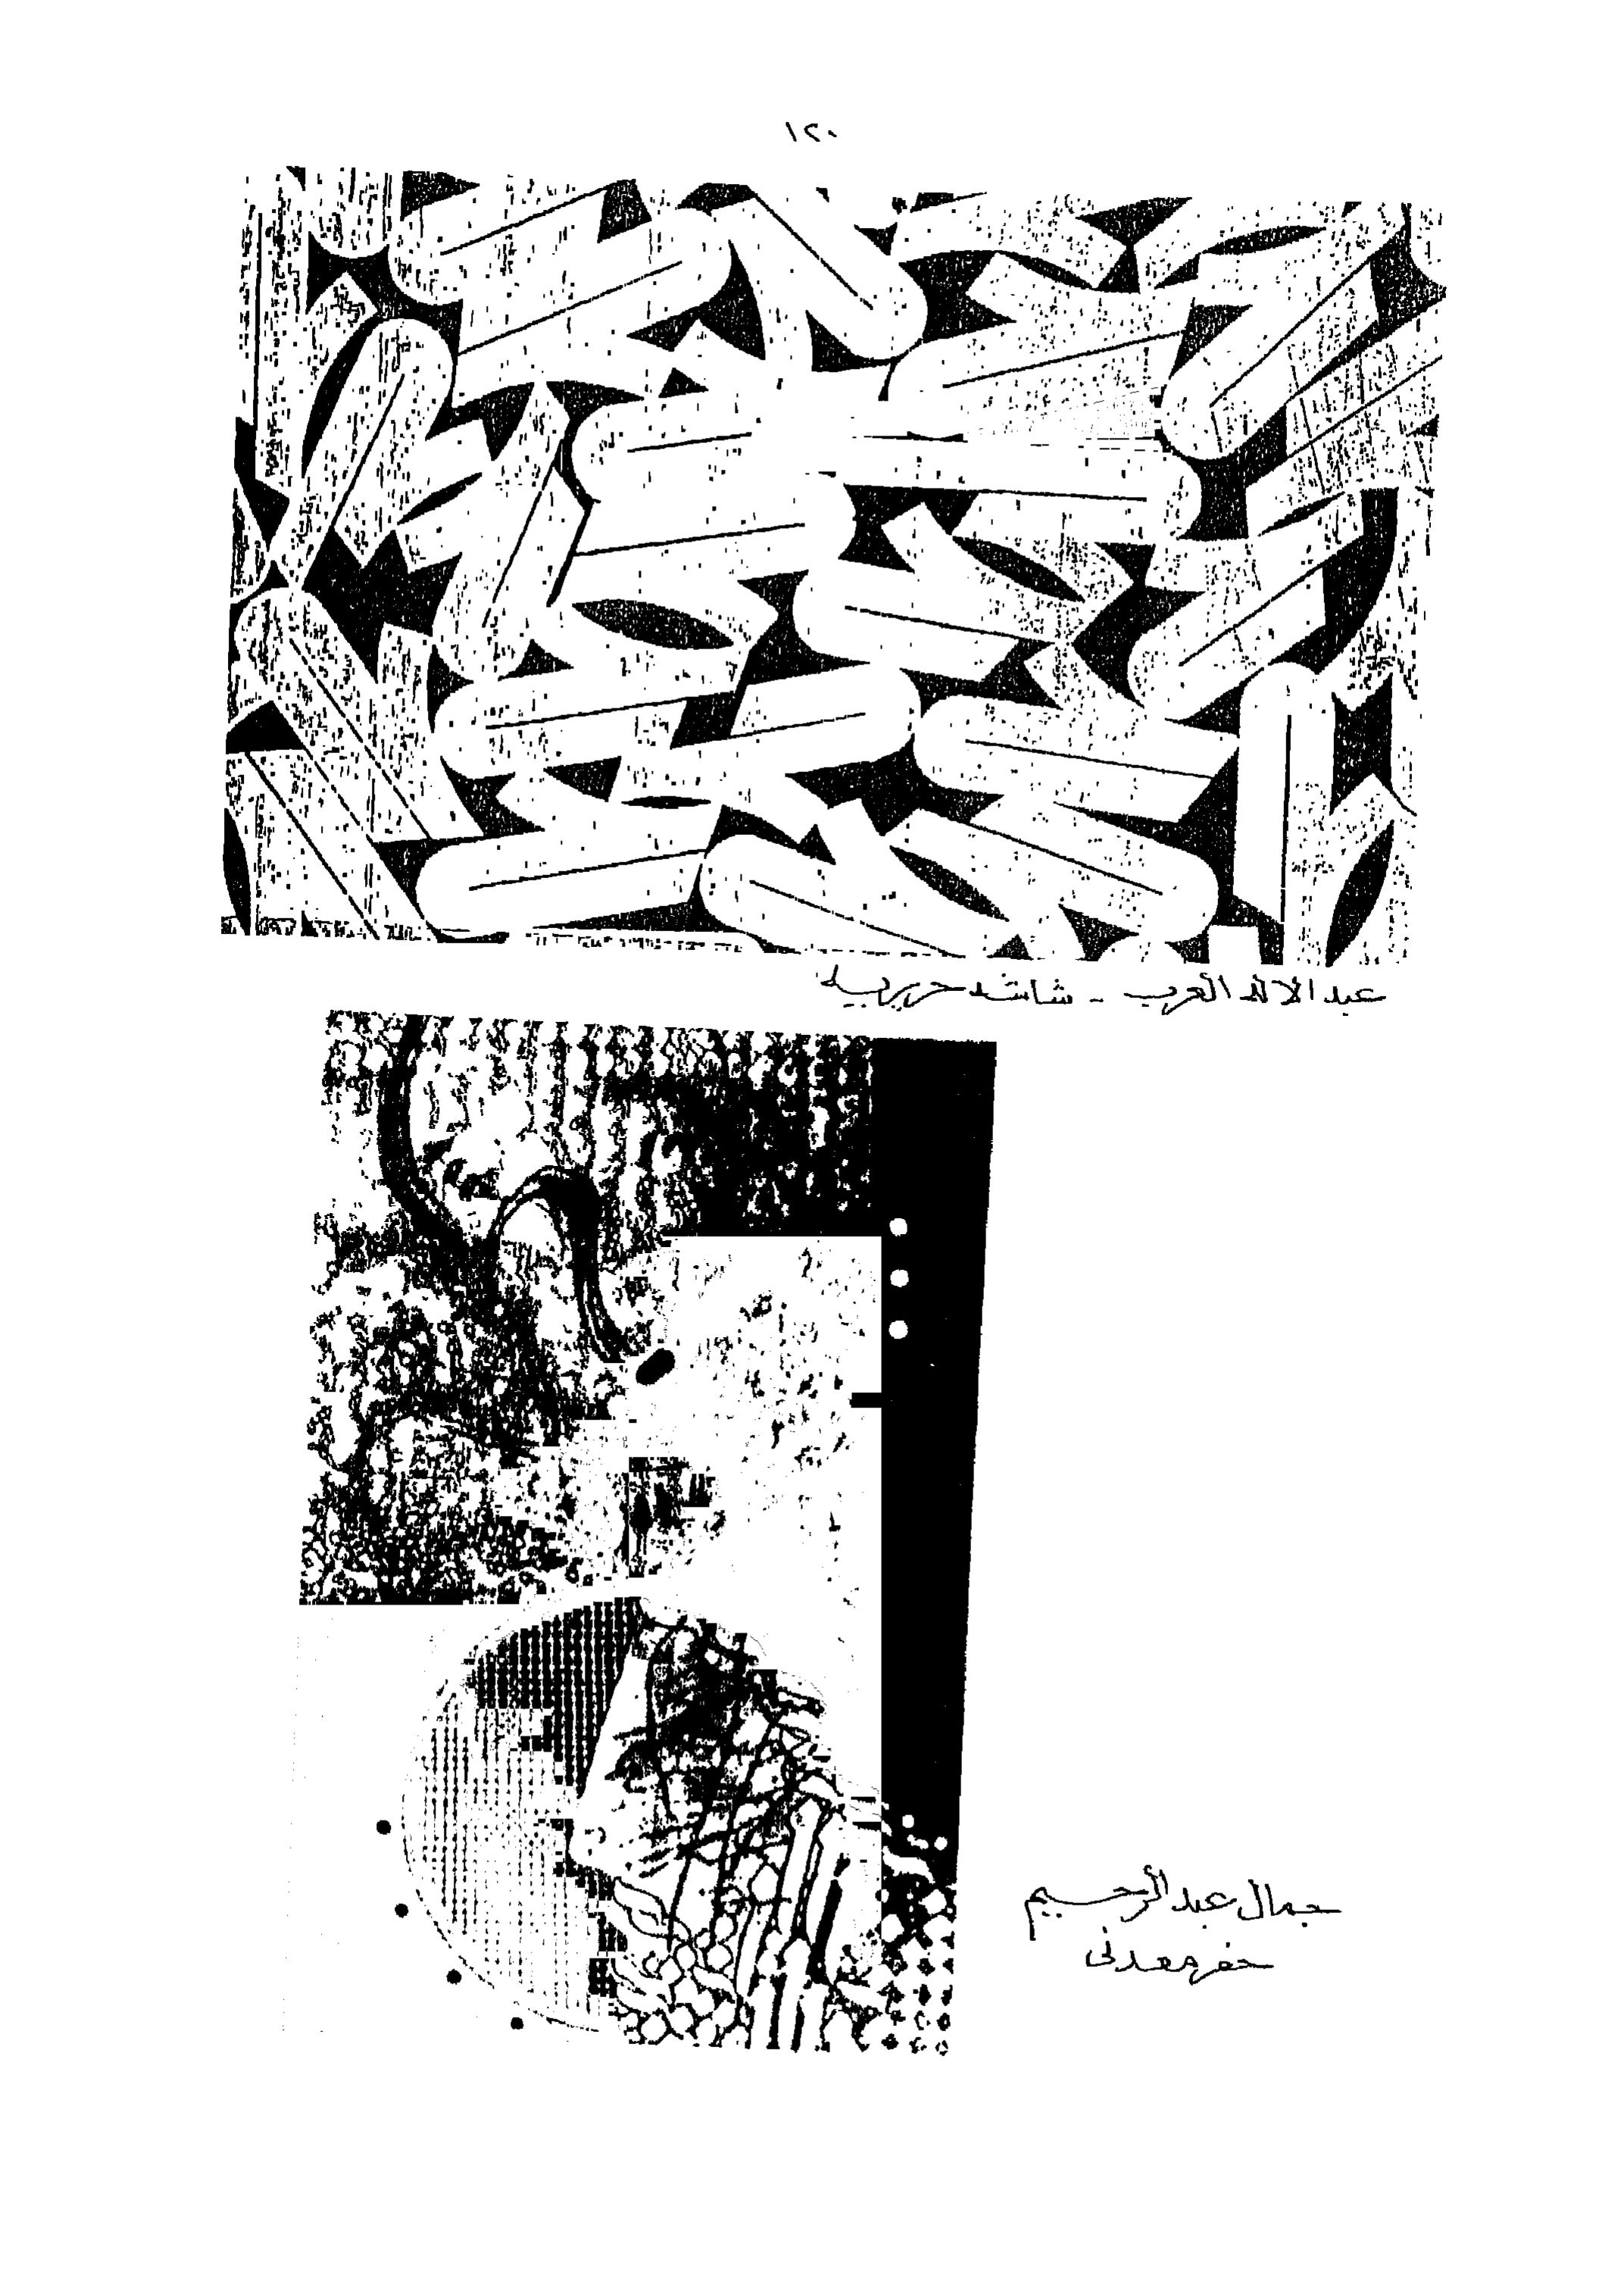 ١٢٠
عبد الاله العرب - شاشه حريريه
جمال عبد الرحيم
حفر معدنى